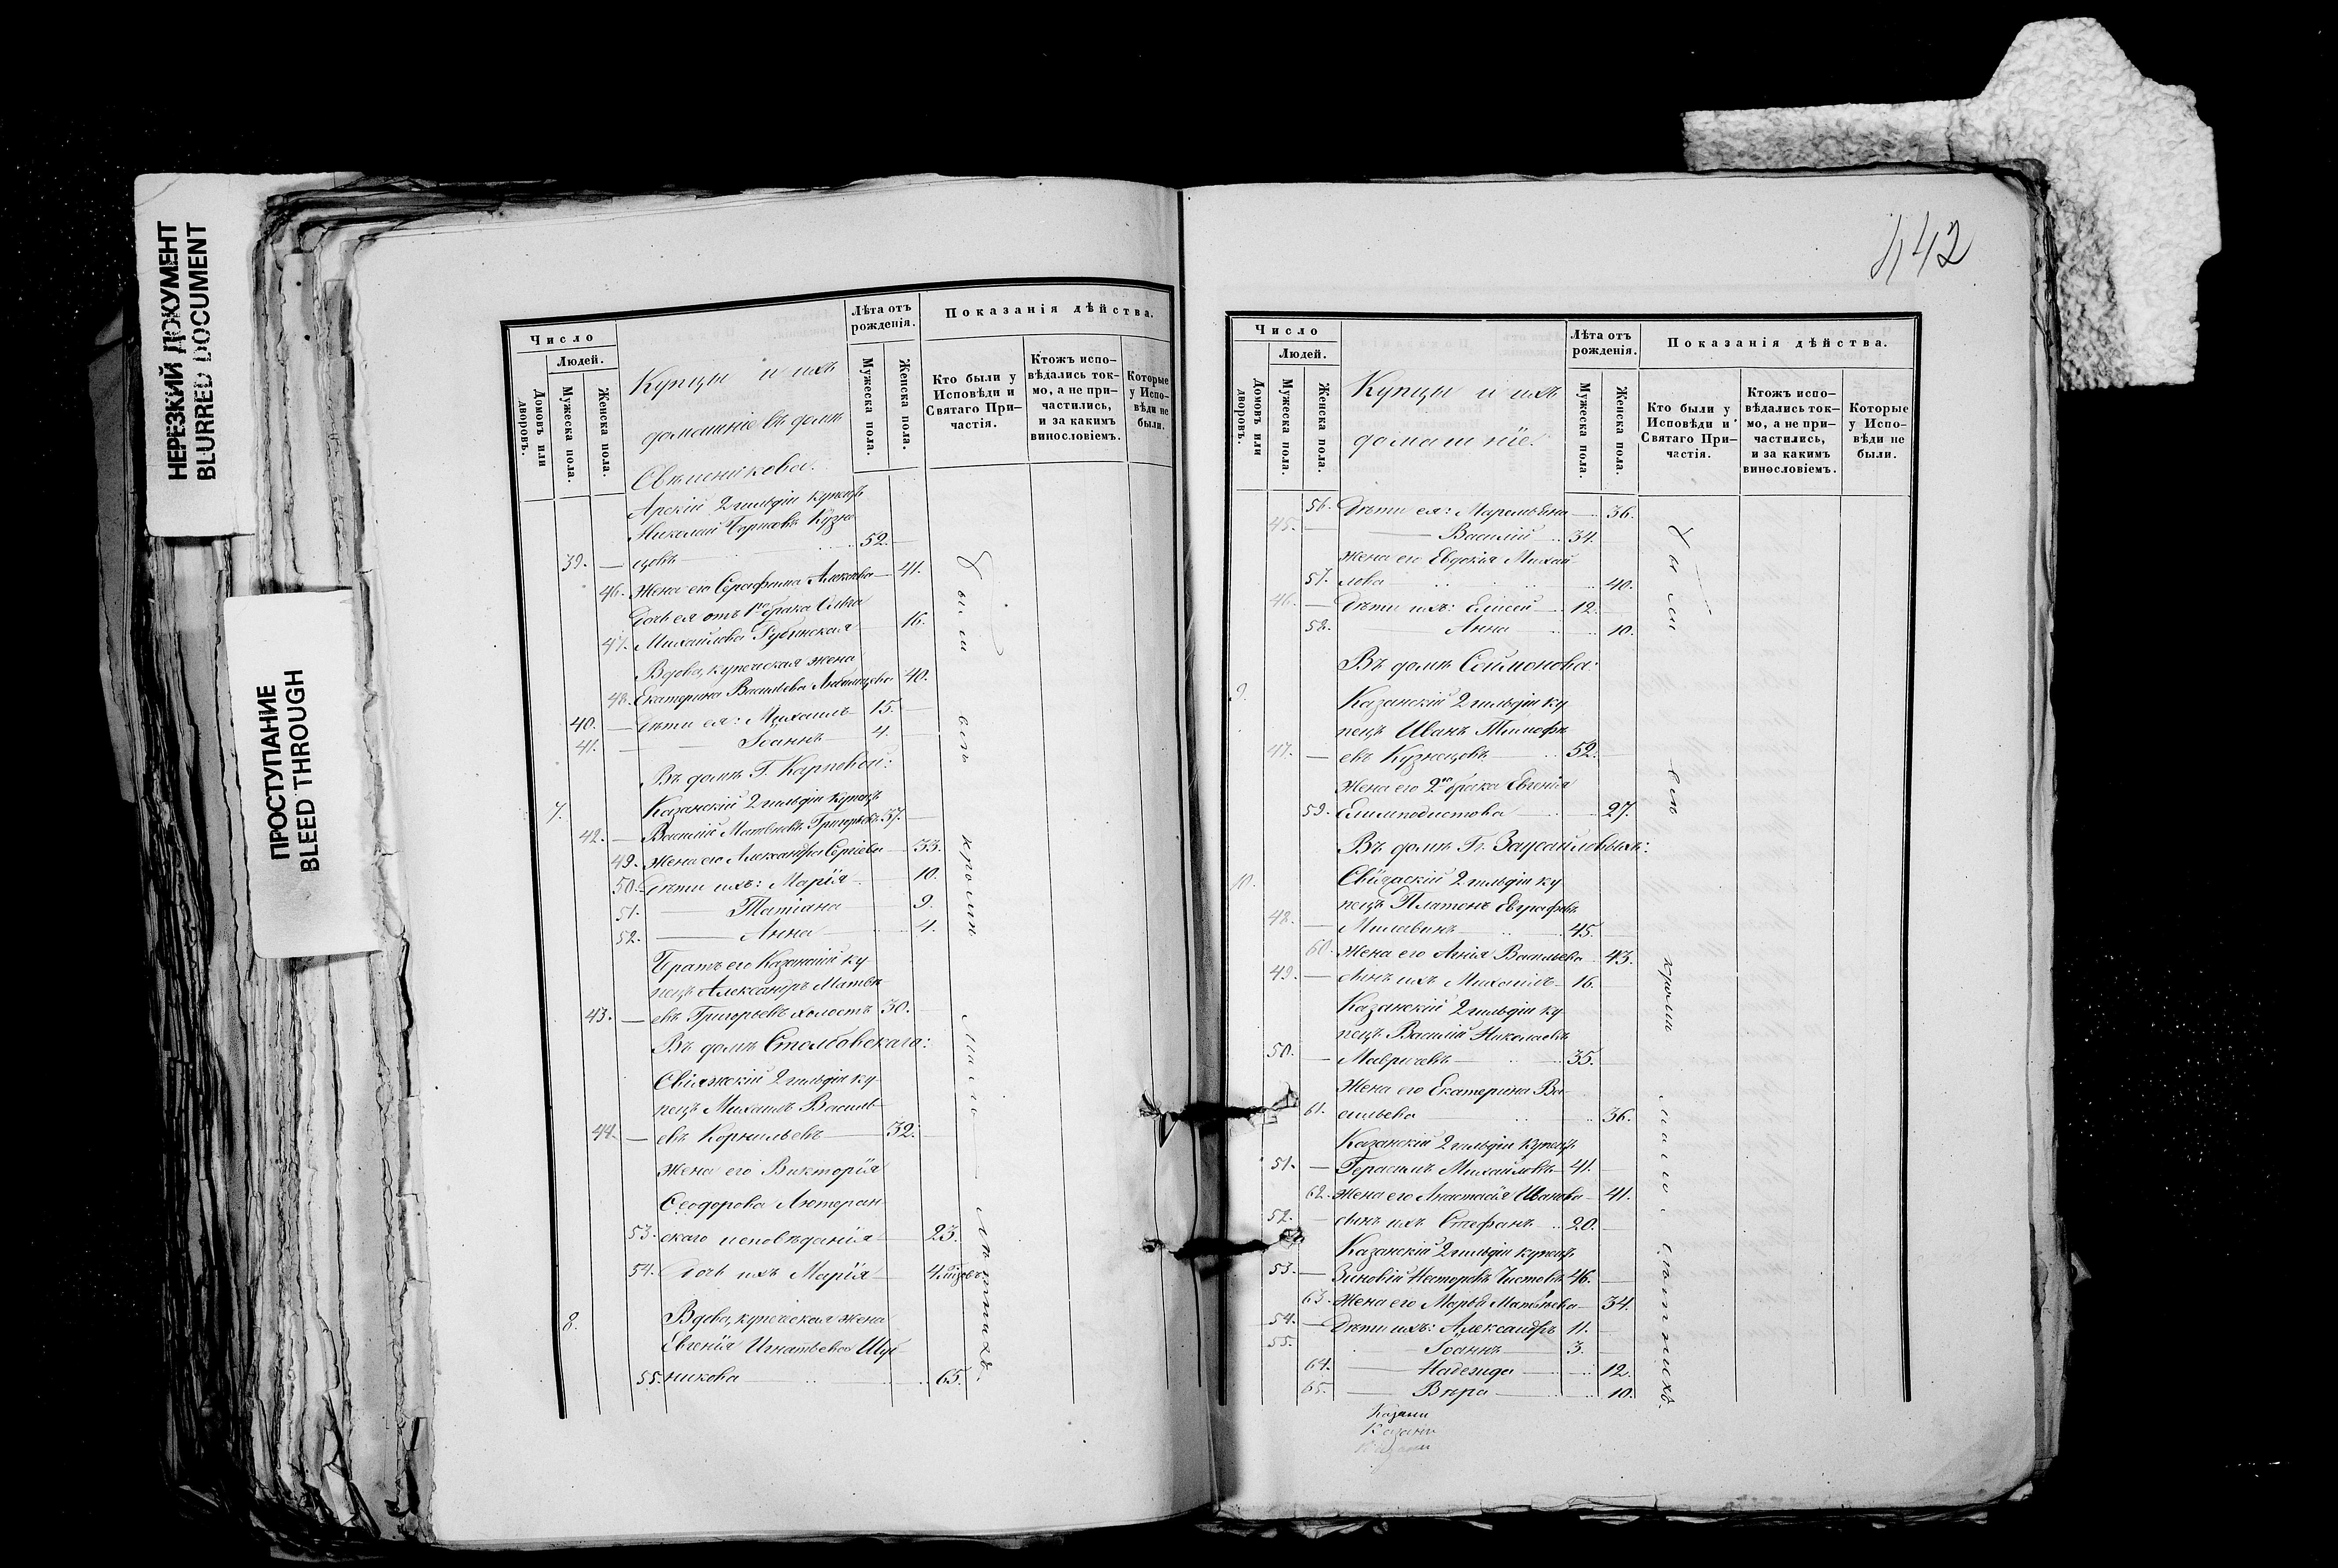 НЕРЕЗКИЙ ДОКУМЕНТ
BLURRED DOCUMENT
ПРОСТУПАНИЕ
BLEED THROUGH
Число
Людей.
Домовъ или дворовъ.
Мужеска пола.
Женска пола.
Купцы и ихъ
домашніе въ домѣ
Свѣшникова.
Лѣта отъ рожденія.
Мужеска пола.
Женска пола.
Показанія дѣйства.
Кто были у Исповѣди и Святаго При-
частія.
Ктожъ испо-
вѣдались ток-
мо, а не при-
частились,
и за какимъ
винословіемъ.
Которые
у Испо-
вѣди не
были.
Арскій 2 гильдіи купецъ
Николай Кузне
39. — цовъ 52.
46. Жена его Серафима 41.
Дочь ея отъ 1го брака Ольга
47. Михайлова 16.
Вдова, купеческая жена
48. Екатерина Васильева 40.
40. — Дѣти ея: Михаилъ 15.
41. — Іоаннъ 4.
Въ домѣ Г. Карповой:
7. Казанскій 2 гильдіи купецъ
42. — Василій Матвѣевъ Григорьевъ 37.
49. Жена его Александра Сергіева 33.
50. Дѣти ихъ: Марія 10.
51. Татіана 9.
52. Анна 4.
Братъ его Казанскій ку
пецъ Александръ Матвѣ
43. — евъ Григорьевъ холостъ 30.
Въ домѣ Столбовскаго:
Свіяжскій 2 гильдіи ку
пецъ Михаилъ Василь
44. — евъ Корнильевъ 32.
Жена его Викторія
Ѳеодорова Лютеран
53. скаго исповѣданія 23.
54. Дочь ихъ Марія 4 мѣсяц.
8. Вдова, купеческая жена
Евгенія Игнатьева
55. никова 65.
Были
всѣ
кромѣ
мало
лѣтнихъ.
442
Число
Людей.
Домовъ или дворовъ.
Мужеска пола.
Женска пола.
Купцы и ихъ
домашніе.
Лѣта отъ рожденія.
Мужеска пола.
Женска пола.
Показанія дѣйства.
Кто были у
Исповѣди и
Святаго При-
частія.
Ктожъ испо-
вѣдались ток-
мо, а не при-
частились,
и за какимъ
винословіемъ.
Которые
у Испо-
вѣди не
были.
56. Дѣти ея: 36.
45. — Василій 34.
Жена его Евдокія Михай
57. лова 40.
46. — Дѣти ихъ: Елисей 12.
58. Анна 10.
Въ домѣ
9. Казанскій 2 гильдіи ку
пецъ Иванъ Тимофѣ
47. — евъ Кузнецовъ 52.
Жена его 2го брака Евгенія
59. Елпидистова 27.
Въ домѣ Гг. Заусайловыхъ:
10. Свіяжскій 2 гильдіи ку
пецъ Платонъ Евграфовъ
48. — Милавинъ 45.
60. Жена его Анна Васильева 43.
49. — Сынъ ихъ Михаилъ 16.
Казанскій 2 гильдіи ку
пецъ Василій Николаевъ
50. — Мавричевъ 35.
Жена его Екатерина Ва-
61. сильева 36.
Казанскій 2 гильдіи купецъ
51. — Герасимъ Михайловъ 41.
62. Жена его Анастасія Иванова 41.
52. — Сынъ ихъ Стефанъ 20.
Казанскій 2 гильдіи купецъ
53. — Зиновій Несторовъ Чистовъ 46.
63. Жена его Марья Матвѣева 34.
54. — Дѣти ихъ: Александръ 11.
55. Іоаннъ 3.
64. Надежда 12.
65. Вѣра 10.
Были
всѣ
кромѣ
мало
лѣтнихъ.
Казани
Казани
Казани